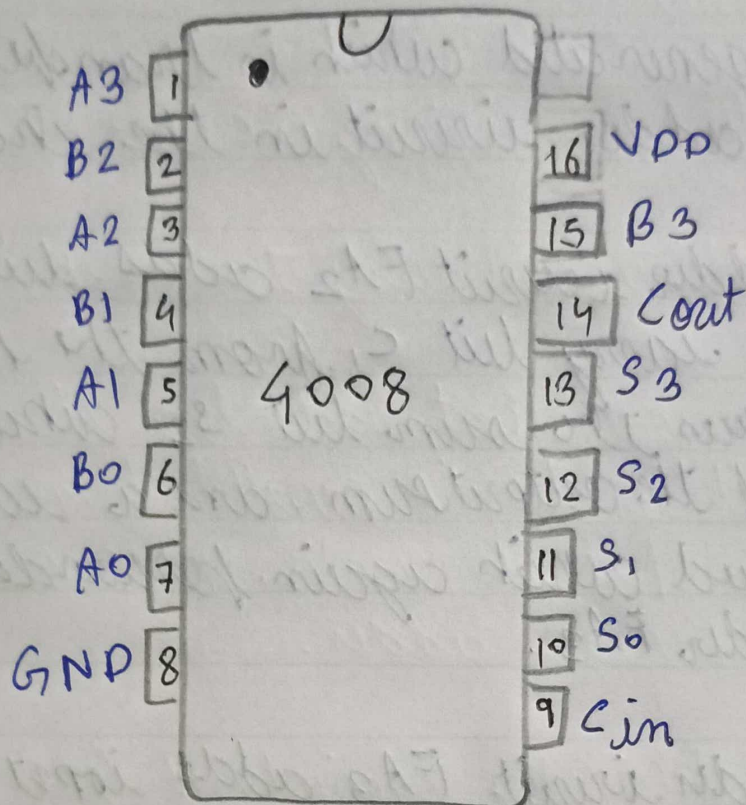 A3 1
B2 2
A2 3
B1 4
A1 5
B0 6
A0 7
GND 8
4008
16 VDD
15 B3
14 Cout
13 S3
12 S2
11 S1
10 S0
9 Cin